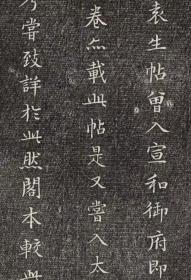 袁生帖曾入宣和御府即
卷亦載此帖是又嘗入太
嘗致詳於此然閣本較